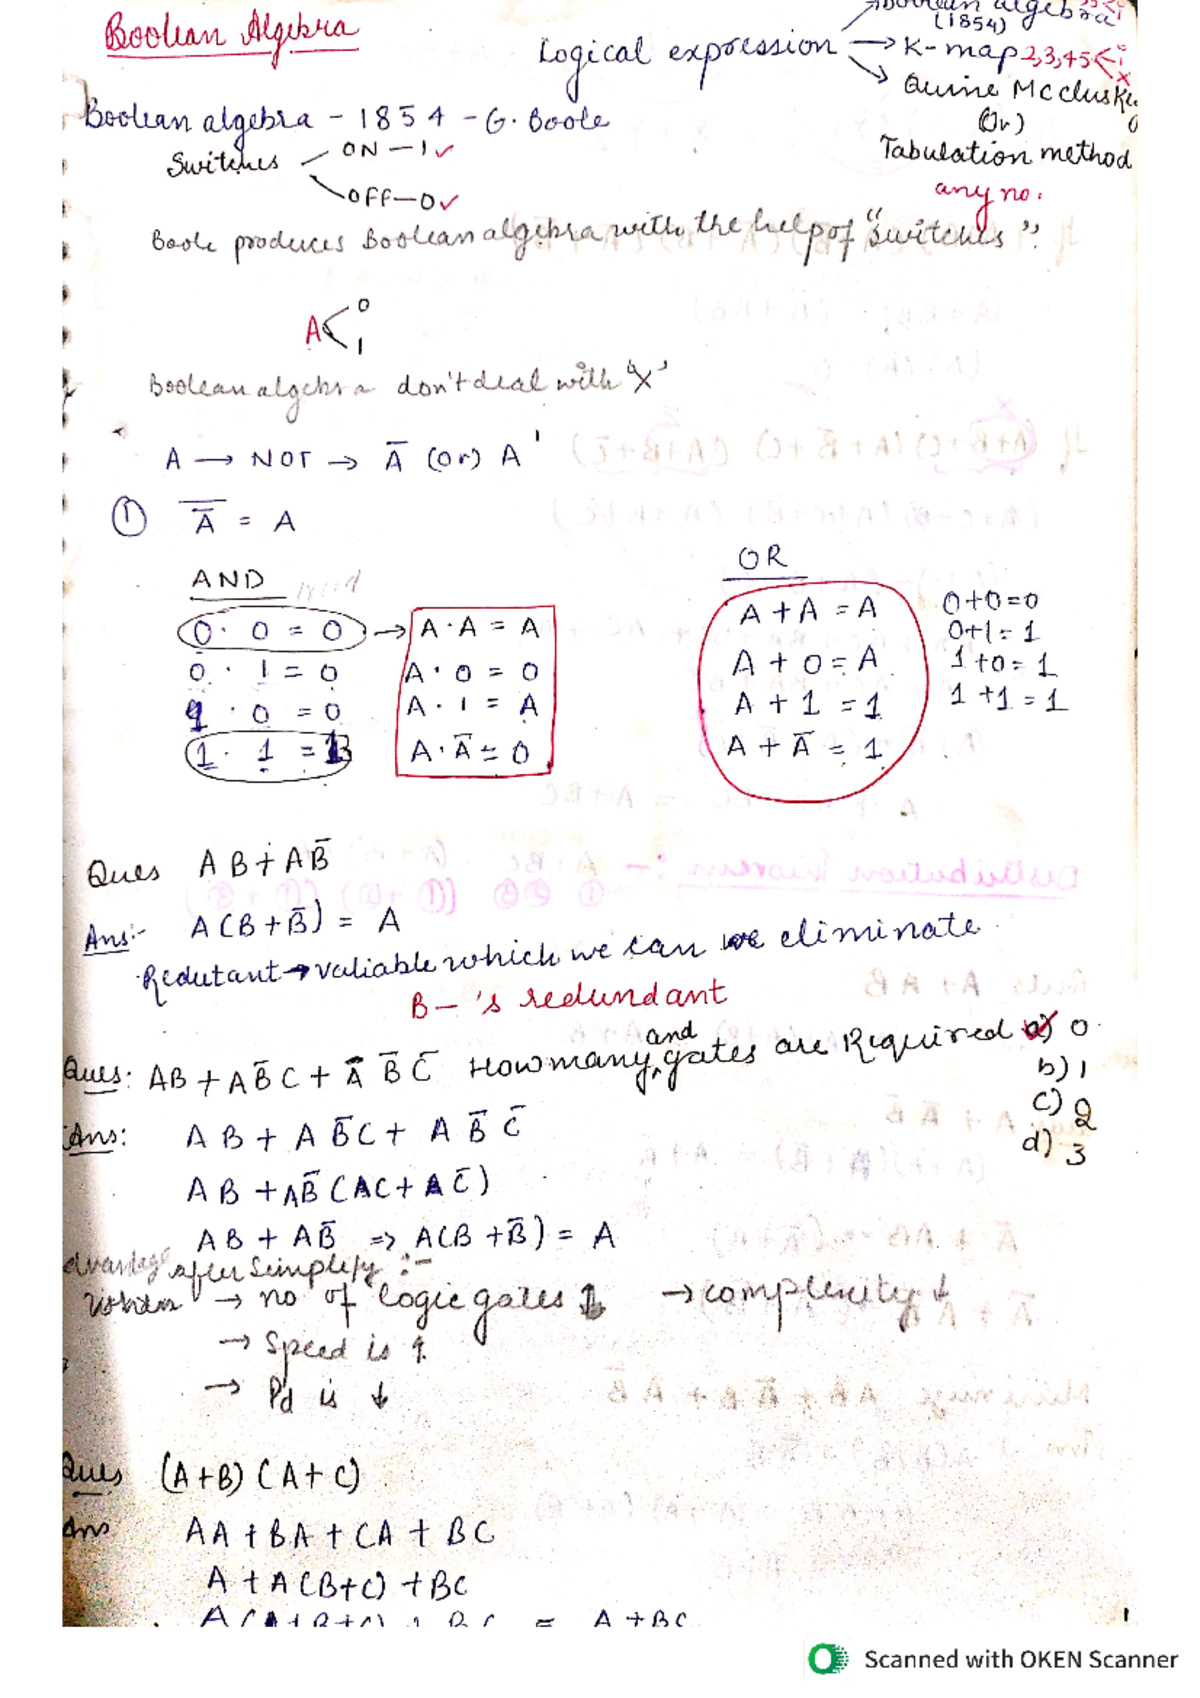 Boolean Algebra
Boolean algebra
(1854)
Logical expression → K-map 2,3,4,5
Quine McClusky
(Or)
Tabulation method
any no.
Boolean algebra - 1854 - G. Boole
Switches
ON - 1 ✓
OFF - 0 ✓
Boole produces Boolean algebra with the help of "switches".
A < 0
1
Boolean algebra don't deal with 'X'
A → NOT → A̅ (or) A'
① A̿ = A
AND
OR
0 · 0 = 0 → A · A = A
0 · 1 = 0 A · 0 = 0
1 · 0 = 0 A · 1 = A
1 · 1 = 1 A · A̅ = 0
A + A = A 0+0=0
A + 0 = A 0+1=1
A + 1 = 1 1+0=1
A + A̅ = 1 1+1=1
Ques AB + AB̅
Ans:- A(B+B̅) = A
Redutant → valiable which we can we eliminate
B - 's redundant
Ques: AB + AB̅C + A B̅ C̅ How many and gates are Required a) 0
b) 1
c) 2
d) 3
Ans: AB + AB̅C + A B̅ C̅
AB + AB̅ (AC + AC̅)
AB + AB̅ => A(B+B̅) = A
dvantage after Simplify :-
→ no of logic gates ↓ → complexity ↓
→ Speed is ↑
→ Pd is ↓
Ques (A+B) (A+C)
Ans AA + BA + CA + BC
A + A(B+C) + BC
= A + BC
1
Scanned with OKEN Scanner